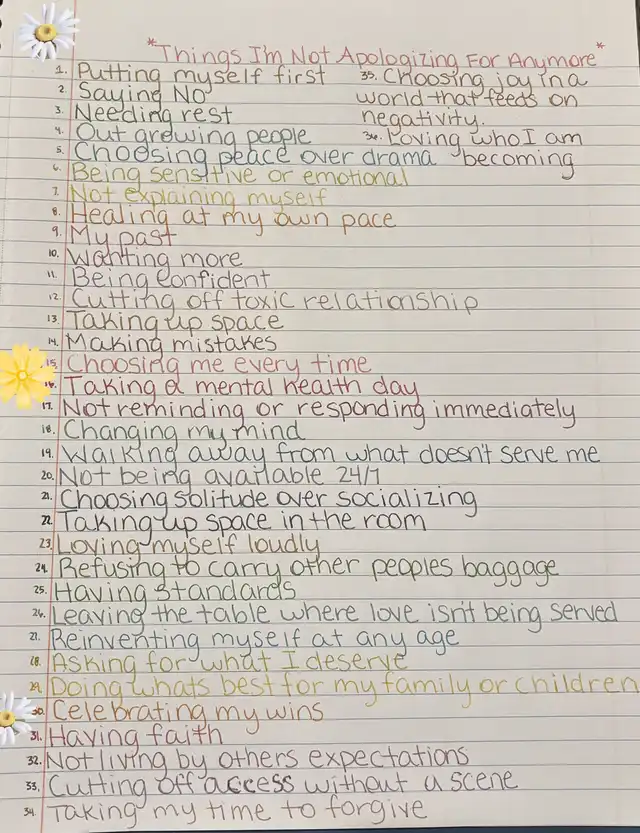 *Things I'm Not Apologizing For Anymore*
1. Putting myself first
2. Saying No
3. Needing rest
4. Out growing people
5. Choosing peace over drama
6. Being sensitive or emotional
7. Not explaining myself
8. Healing at my own pace
9. My past
10. Wanting more
11. Being Confident
12. Cutting off toxic relationship
13. Taking up space
14. Making mistakes
15. Choosing me every time
16. Taking a mental health day
17. Not reminding or responding immediately
18. Changing my mind
19. Walking away from what doesn't serve me
20. Not being available 24/7
21. Choosing solitude over socializing
22. Taking up space in the room
23. Loving myself loudly
24. Refusing to carry other peoples baggage
25. Having standards
26. Leaving the table where love isn't being served
27. Reinventing myself at any age
28. Asking for what I deserve
29. Doing whats best for my family or children
30. Celebrating my wins
31. Having faith
32. Not living by others expectations
33. Cutting off access without a scene
34. Taking my time to forgive
35. Choosing joy in a
world that feeds on
negativity.
36. Loving who I am
becoming